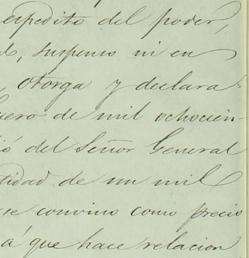 expedito del poder,
suspenso ni en
otorga y declara
ero de mil ochocien
ió del Señor General
tidad de un mil
se convino como precio
á que hace relacion